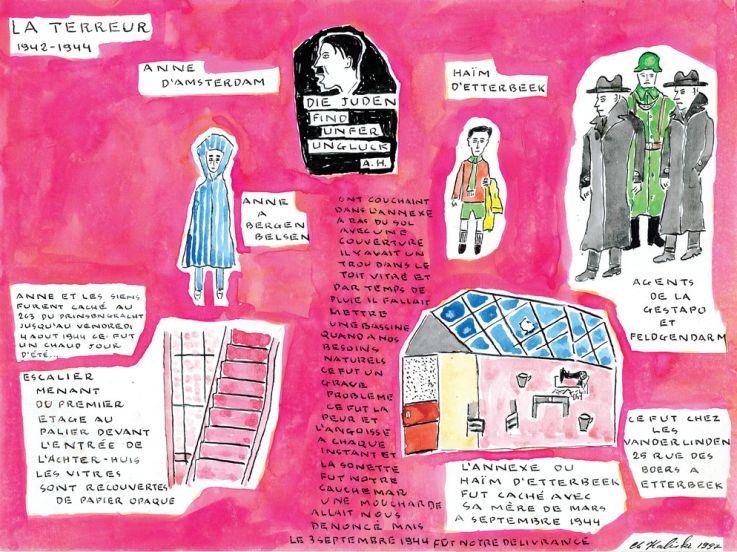 LA TERREUR
1942-1944
ANNE
D'AMSTERDAM
DIE JUDEN
FIND
UNFER
UNGLUCK
A.H.
HAÏM
D'ETTERBEEK
ANNE
A
BERGEN
BELSEN
AGENTS
DE LA
GESTAPO
ET
FELDGENDARM
ANNE ET LES SIENS
FURENT CACHÉ AU
263 DU PRINSENGRACHT
JUSQU'AU VENDREDI
4 AOUT 1944 CE FUT
UN CHAUD JOUR
D'ÉTÉ...
ESCALIER
MENANT
DU PREMIER
ETAGE AU
PALIER DEVANT
L'ENTRÉE DE
L'ACHTER-HUIS
LES VITRES
SONT RECOUVERTES
DE PAPIER OPAQUE
ONT COUCHAINT
DANS L'ANNEXE
A RAS DU SOL
AVEC UNE
COUVERTURE
IL Y AVAIT UN
TROU DANS LE
TOIT VITRÉ ET
PAR TEMPS DE
PLUIE IL FALLAIT
METTRE
UNE BASSINE
QUAND A NOS
BESOINS
NATURELS
CE FUT UN
GRAVE
PROBLEME
CE FUT LA
PEUR ET
L'ANGOISSE
A CHAQUE
INSTANT ET
LA SONETTE
FUT NOTRE
CAUCHEMAR
UNE MOUCHARDE
ALLAIT NOUS
DENONCÉ MAIS
LE 3 SEPTEMBRE 1944 FUT NOTRE DELIVRANCE
L'ANNEXE OU
HAÏM D'ETTERBEEK
FUT CACHÉ AVEC
SA MÈRE DE MARS
A SEPTEMBRE 1944
CE FUT CHEZ
LES
VANDERLINDEN
25 RUE DES
BOERS A
ETTERBEEK
1992